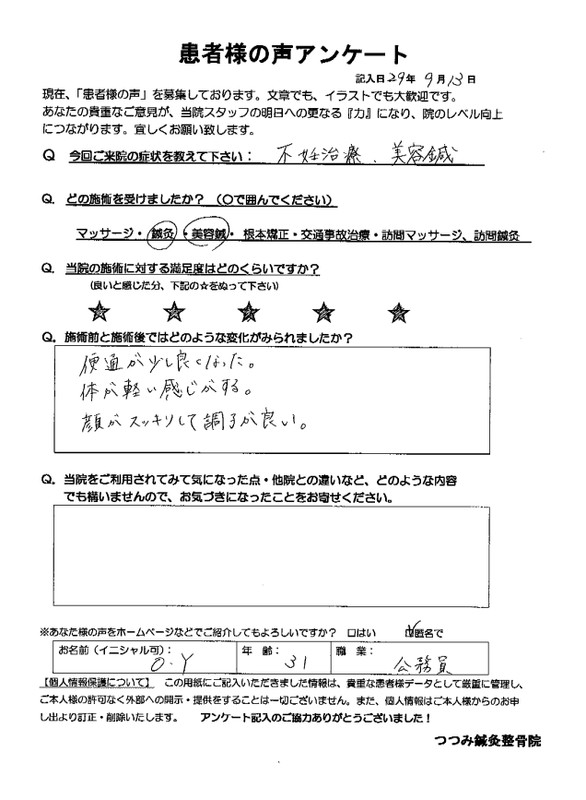 患者様の声アンケート
記入日29年 9月13日
現在、「患者様の声」を募集しております。文章でも、イラストでも大歓迎です。
あなたの貴重なご意見が、当院スタッフの明日への更なる『力』になり、院のレベル向上
につながります。宜しくお願い致します。
Q 今回ご来院の症状を教えて下さい： 不妊治療、美容鍼
Q. どの施術を受けましたか？（〇で囲んでください）
マッサージ・鍼灸・美容鍼・根本矯正・交通事故治療・訪問マッサージ、訪問鍼灸
Q. 当院の施術に対する満足度はどのくらいですか？
（良いと感じた分、下記の☆をぬって下さい）
★ ★ ★ ★ ★
Q. 施術前と施術後ではどのような変化がみられましたか？
便通が少し良くなった。
体が軽い感じがする。
顔がスッキリして調子が良い。
Q. 当院をご利用されてみて気になった点・他院との違いなど、どのような内容
でも構いませんので、お気づきになったことをお寄せください。
※あなた様の声をホームページなどでご紹介してもよろしいですか？ □はい ☑匿名で
お名前（イニシャル可）： O.Y 年 齢： 31 職 業： 公務員
【個人情報保護について】 この用紙にご記入いただきました情報は、貴重な患者様データとして厳重に管理し、
ご本人様の許可なく外部への開示・提供をすることは一切ございません。また、個人情報はご本人様からのお申
し出より訂正・削除いたします。 アンケート記入のご協力ありがとうございました！
つつみ鍼灸整骨院